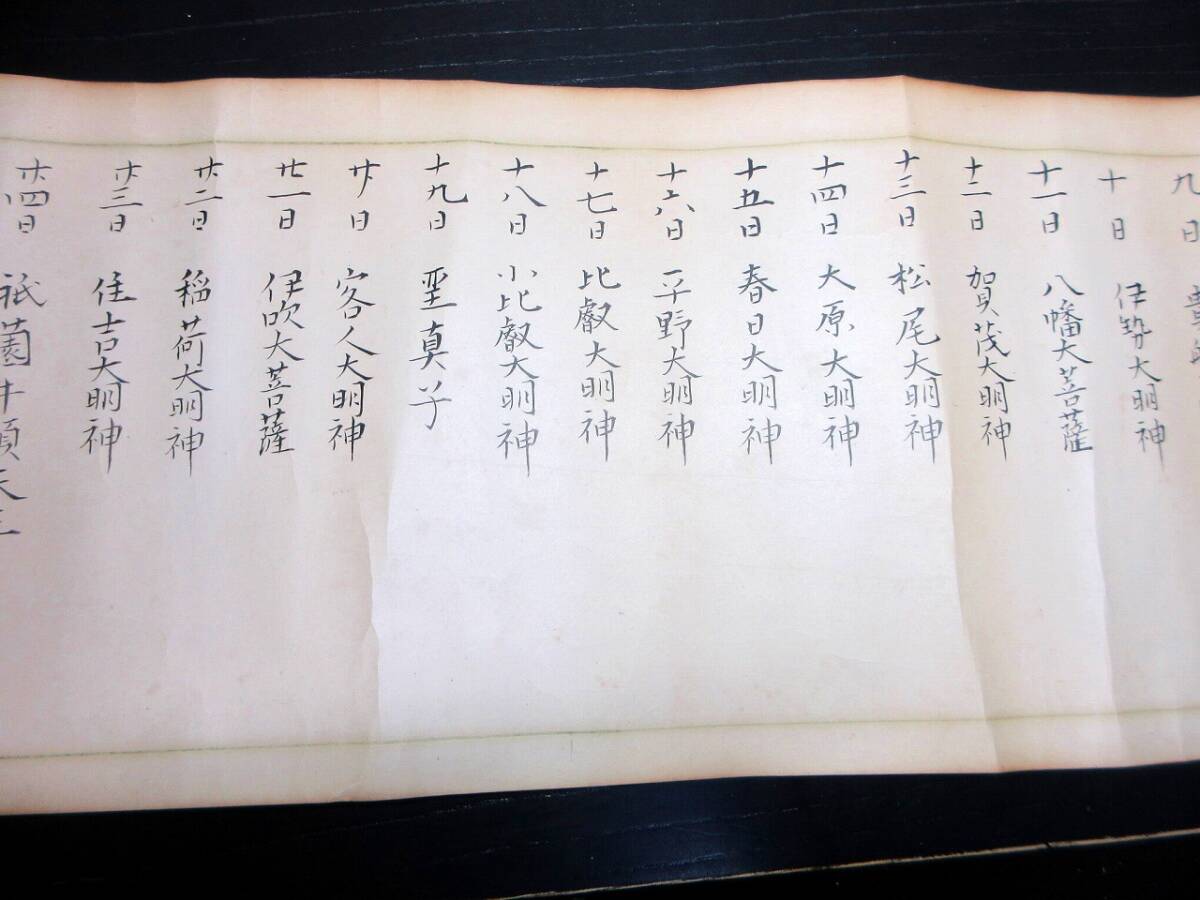 九日
十日 伊勢大明神
十一日 八幡大菩薩
十二日 賀茂大明神
十三日 松尾大明神
十四日 大原大明神
十五日 春日大明神
十六日 平野大明神
十七日 比叡大明神
十八日 小比叡大明神
十九日 聖真子
廿日 客人大明神
廿一日 伊吹大菩薩
廿二日 稲荷大明神
廿三日 住吉大明神
廿四日 祇薗牛頭天王